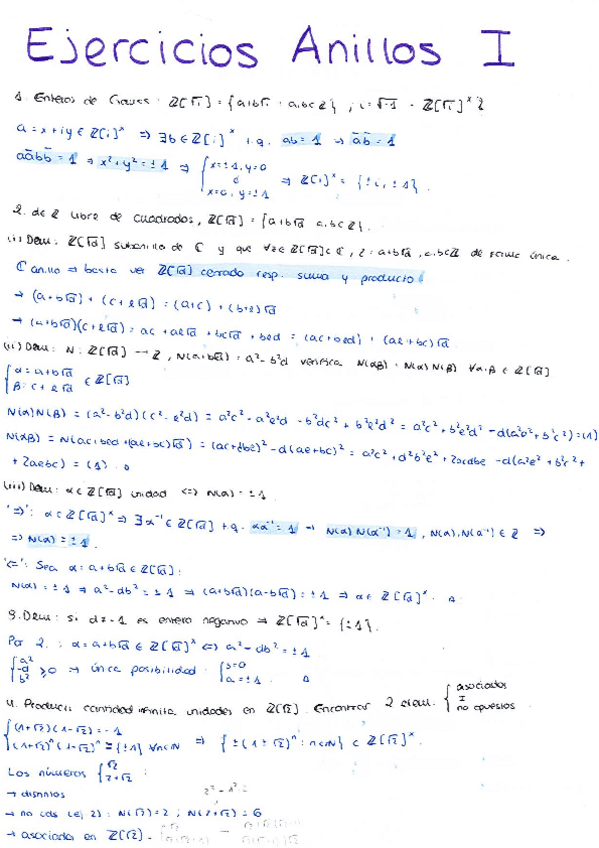 Ejercicios Anillos I
1. Enteros de Gauss: ℤ[i] = {a+bi : a,b∈ℤ}, i=√-1 · ℤ[i]^x ?
a = x+iy ∈ ℤ[i]^x ⇒ ∃b∈ℤ[i]^x t.q. ab = 1 ⇒ āb̄ = 1
aābb̄ = 1 ⇒ x²+y² = ±1 ⇒ { x=±1, y=0 ó x=0, y=±1 ⇒ ℤ[i]^x = {±i, ±1}.
2. d∈ℤ libre de cuadrados, ℤ[√d] = {a+b√d a,b∈ℤ}.
(i) Dem: ℤ[√d] subanillo de ℂ y que ∀z∈ℤ[√d]⊂ℂ, z=a+b√d, a,b∈ℤ de forma única.
ℂ anillo ⇒ basta ver ℤ[√d] cerrado resp. suma y producto
→ (a+b√d) + (c+e√d) = (a+c) + (b+e)√d
→ (a+b√d)(c+e√d) = ac + ae√d + bc√d + bed = (ac+bed) + (ae+bc)√d.
(ii) Dem: N: ℤ[√d] → ℤ, N(a+b√d) = a²-b²d verifica N(αβ) = N(α)N(β) ∀α,β∈ℤ[√d]
{ α=a+b√d β=c+e√d ∈ ℤ[√d]
N(α)N(β) = (a²-b²d)(c²-e²d) = a²c² - a²e²d - b²dc² + b²e²d² = a²c² + b²e²d² - d(a²e²+b²c²) = (1)
N(αβ) = N(ac+bed+(ae+bc)√d) = (ac+dbe)² - d(ae+bc)² = a²c² + d²b²e² + 2acdbe - d(a²e² + b²c² +
+ 2aebc) = (1).
(iii) Dem: α∈ℤ[√d] unidad ⇔ N(α) = ±1.
'⇒': α∈ℤ[√d]^x ⇒ ∃α⁻¹∈ℤ[√d] t.q. αα⁻¹ = 1 ⇒ N(α)N(α⁻¹) = 1, N(α), N(α⁻¹) ∈ ℤ ⇒
⇒ N(α) = ±1.
'⇐': Sea α = a+b√d ∈ ℤ[√d]:
N(α) = ±1 ⇒ a²-db² = ±1 ⇒ (a+b√d)(a-b√d) = ±1 ⇒ α∈ℤ[√d]^x.
3. Dem: si d≠-1 es entero negativo ⇒ ℤ[√d]^x = {±1}.
Por 2.: α = a+b√d ∈ ℤ[√d]^x ⇔ a²-db² = ±1
{ a² -d b² ≥0 → única posibilidad { b=0 a=±1.
4. Producir cantidad infinita unidades en ℤ[√2]. Encontrar 2 elem. { asociados y no opuestos
{ (1+√2)(1-√2) = -1 (1+√2)ⁿ(1-√2)ⁿ ∈ {±1} ∀n∈ℕ ⇒ {±(1±√2)ⁿ : n∈ℕ} ⊂ ℤ[√2]^x.
Los números { √2 2+√2 :
→ distintos
→ no uds
→ asociados en ℤ[√2].